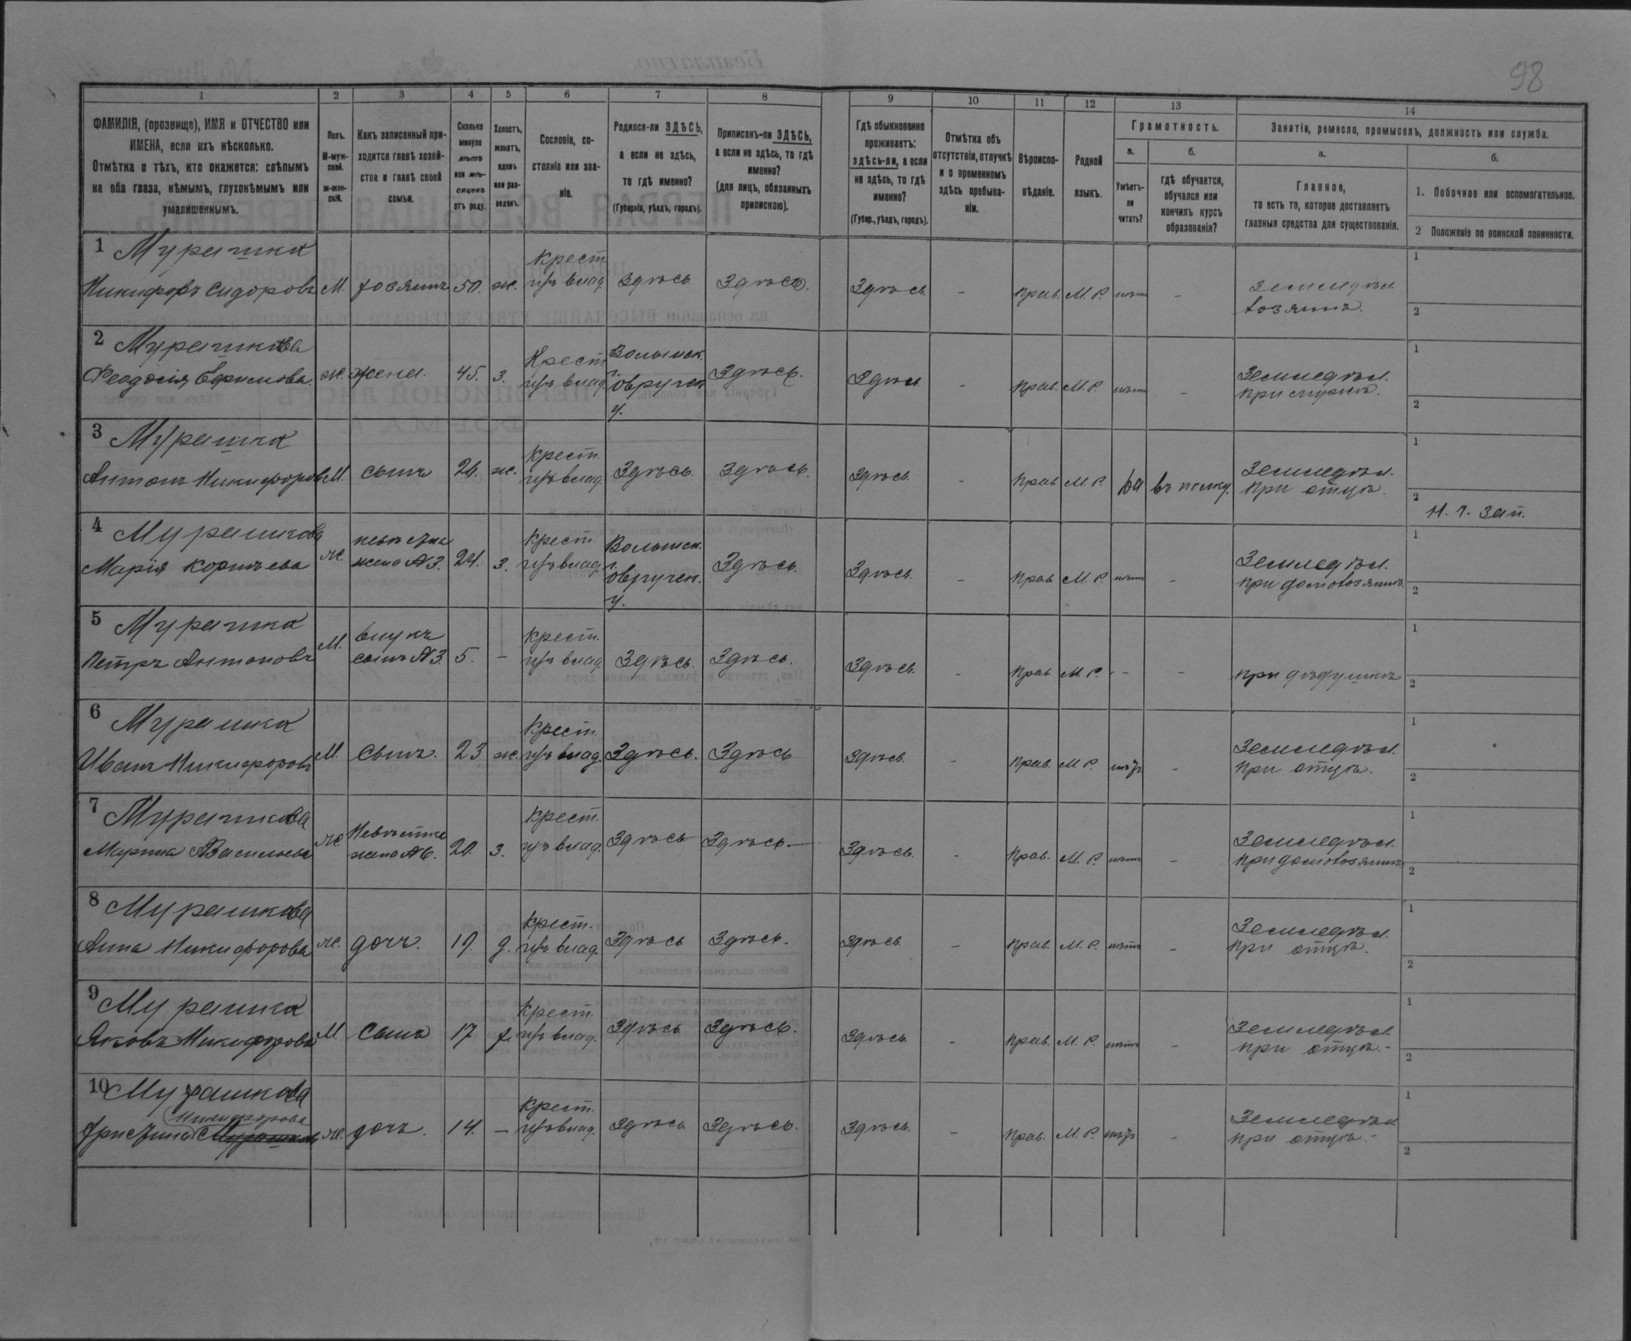 98
1 2 3 4 5 6 7 8 9 10 11 12 13 14
ФАМИЛІЯ, (прозвище), ИМЯ и ОТЧЕСТВО или
ИМЕНА, если ихъ нѣсколько.
Отмѣтка о тѣхъ, кто окажется: слѣпымъ
на оба глаза, нѣмымъ, глухонѣмымъ или
умалишеннымъ.
Полъ.
М-муж-
ской.
Ж-жен-
скій.
Какъ записанный при-
ходится главѣ хозяй-
ства и главѣ своей
семьи.
Сколько
минуло
лѣтъ
или мѣ-
сяцевъ
отъ роду.
Холостъ,
женатъ,
вдовъ
или раз-
веденъ.
Сословіе, со-
стояніе или зва-
ніе.
Родился-ли ЗДѢСЬ,
а если не здѣсь,
то гдѣ именно?
(Губернія, уѣздъ, городъ).
Приписанъ-ли ЗДѢСЬ,
а если не здѣсь, то гдѣ
именно?
(для лицъ, обязанныхъ
припискою).
Гдѣ обыкновенно
проживаетъ:
здѣсь-ли, а если
не здѣсь, то гдѣ
именно?
(Губер., уѣздъ, городъ).
Отмѣтка объ
отсутствіи, отлучкѣ
и о временномъ
здѣсь пребыва-
ніи.
Вѣроиспо-
вѣданіе.
Родной
языкъ.
Грамотность.
а.
Умѣетъ-
ли
читать?
б.
гдѣ обучается,
обучался или
кончилъ курсъ
образованія?
Занятія, ремесло, промыселъ, должность или служба.
а.
Главное,
то есть то, которое доставляетъ
главныя средства для существованія.
б.
1. Побочное или вспомогательное.
2 Положеніе по воинской повинности.
1 Мурашка
Никифоръ Сидоровъ М. хозяинъ 50. ж. Крест. изъ влад. Здѣсь Здѣсь. Здѣсь - Прав. М. Р. нѣтъ - Земледѣл.
хозяинъ.
1
2
2 Мурашкова
Феодосія Ефимова ж. жена. 45. з. Крест. изъ влад. Волынск. г. Овручск. у. Здѣсь. Здѣсь - Прав. М. Р. нѣтъ - Земледѣл.
при мужѣ.
1
2
3 Мурашка
Антонъ Никифоровъ М. сынъ 26. ж. Крест. изъ влад. Здѣсь. Здѣсь. Здѣсь - Прав. М. Р. да въ полку. Земледѣл.
при отцѣ.
1
2
4 Мурашкова
Марія Корнѣева ж. невѣстка жена №3. 24. з. Крест. изъ влад. Волынск. г. Овручск. у. Здѣсь. Здѣсь. - Прав. М. Р. нѣтъ - Земледѣл.
при домохозяинѣ
1
2
5 Мурашка
Петръ Антоновъ М. внукъ сынъ №3. 5. - Крест. изъ влад. Здѣсь. Здѣсь. Здѣсь. - Прав. М. Р. - - при дѣдушкѣ
1
2
6 Мурашка
Иванъ Никифоровъ М. Сынъ. 23 ж. Крест. изъ влад. Здѣсь. Здѣсь Здѣсь. - Прав. М. Р. нѣтъ - Земледѣл.
при отцѣ.
1
2
7 Мурашкова
Марина Васильева ж Невѣстка жена №6. 20. з. Крест. изъ влад. Здѣсь Здѣсь. Здѣсь. - Прав. М. Р. нѣтъ - Земледѣл.
при домохозяинѣ
1
2
8 Мурашкова
Анна Никифорова ж. дочь. 19. д. Крест. изъ влад. Здѣсь Здѣсь. Здѣсь - Прав. М. Р. нѣтъ - Земледѣл.
при отцѣ.
1
2
9 Мурашка
Яковъ Никифоровъ М Сынъ 17 х. Крест. изъ влад. Здѣсь Здѣсь. Здѣсь - Прав. М. Р. нѣтъ - Земледѣл.
при отцѣ.
1
2
10 Мурашкова
Никифорова
Христина ж. дочь. 14. - Крест. изъ влад. Здѣсь Здѣсь. Здѣсь. - Прав. М. Р. нѣтъ - Земледѣл.
при отцѣ.
1
2